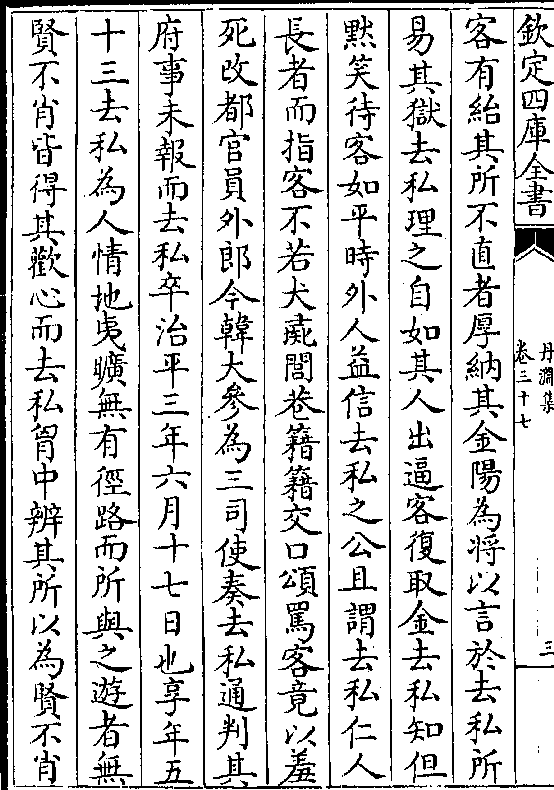 欽定四庫全書
丹淵集
卷三十七
三
客有紿其所不直者厚納其金陽為將以言於去私所
易其獄去私理之自如其人出逼客復取金去私知但
黙笑待客如平時外人益信去私之公且謂去私仁人
長者而指客不若犬彘閭巷籍籍交口頌罵客竟以羞
死改都官員外郎今韓大參為三司使奏去私通判其
府事未報而去私卒治平三年六月十七日也享年五
十三去私為人情地夷曠無有徑路而所與之遊者無
賢不肖皆得其歡心而去私胷中辨其所以為賢不肖